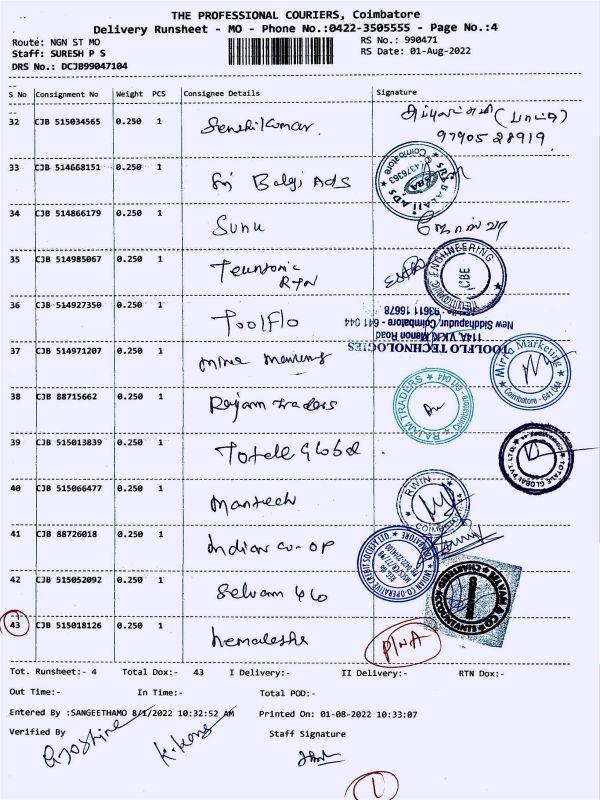 THE PROFESSIONAL COURIERS, Coimbatore
Delivery Runsheet - MO - Phone No.:0422-3505555 - Page No.:4
Route: NGN ST MO
RS No.: 990471
Staff: SURESH P S
RS Date: 01-Aug-2022
DRS No.: DCJB99047104
S No Consignment No Weight PCS Consignee Details Signature
32 CJB 515034565 0.250 1 Senthilkumar
33 CJB 514668151 0.250 1 Sri Balaji Ads
34 CJB 514866179 0.250 1
35 CJB 514985067 0.250 1
36 CJB 514927350 0.250 1 ToolFlo
TOOLFLO TECHNOLOGIES
114A VKK Menon Road
New Siddhapudur, Coimbatore - 641 044
93611 16678
37 CJB 514971207 0.250 1
Mirra Marketing
Coimbatore - 641 044
38 CJB 88715662 0.250 1 Rajam Traders RAJAM TRADERS Coimbatore - 641 044
39 CJB 515013839 0.250 1 Totele Global TOTALE GLOBAL PVT. LTD.
40 CJB 515066477 0.250 1 Mantech
41 CJB 88726018 0.250 1 Indian co-op INDIAN CO-OPERATIVE CREDIT SOCIETY LTD.
42 CJB 515052092 0.250 1 Selvam & Co
43 CJB 515018126 0.250 1 P/NA
Tot. Runsheet:- 4 Total Dox:- 43 I Delivery:- II Delivery:- RTN Dox:-
Out Time:- In Time:- Total POD:-
Entered By :SANGEETHAMO 8/1/2022 10:32:52 AM Printed On: 01-08-2022 10:33:07
Verified By Staff Signature
1